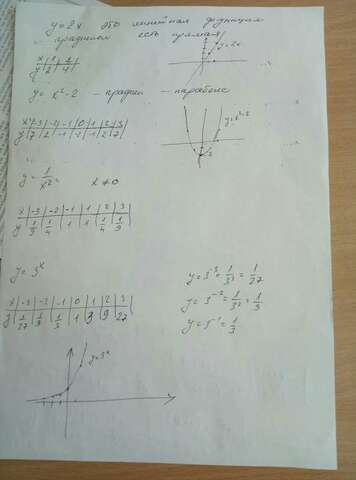 y=2x это линейная функция
графиком есть прямая
x | 1 | 2
y | 2 | 4
y=2x
y= x²-2 - график - парабола
x | -3 | -2 | -1 | 0 | 1 | 2 | 3
y | 7 | 2 | -1 | -2 | -1 | 2 | 7
y=x²-2
y= 1/x² x≠0
x | -3 | -2 | -1 | 1 | 2 | 3
y | 1/9 | 1/4 | 1 | 1 | 1/4 | 1/9
y= 3ˣ
x | -3 | -2 | -1 | 0 | 1 | 2 | 3
y | 1/27 | 1/9 | 1/3 | 1 | 3 | 9 | 27
y=3⁻³=1/3³=1/27
y=3⁻²=1/3²=1/9
y=3⁻¹=1/3
y=3ˣ